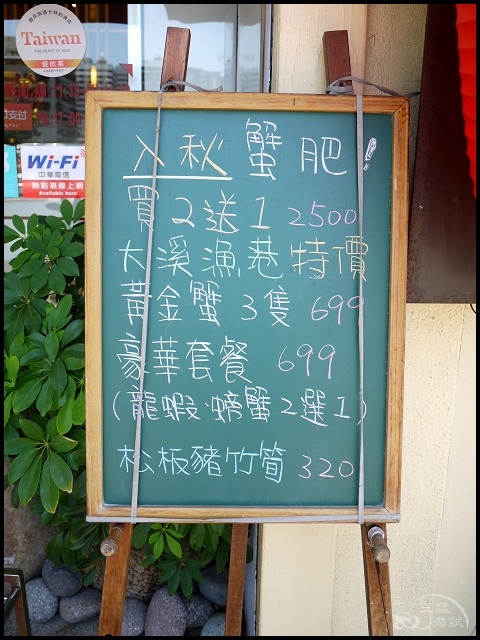 Taiwan
THE HEART OF ASIA
餐飲業
Wi-Fi
中華電信
熱點無線上網
Available here
入秋蟹肥!
買2送1 2500
大溪漁巷特價
黃金蟹3隻 699
豪華套餐 699
(龍蝦·螃蟹2選1)
松板豬竹筍 320